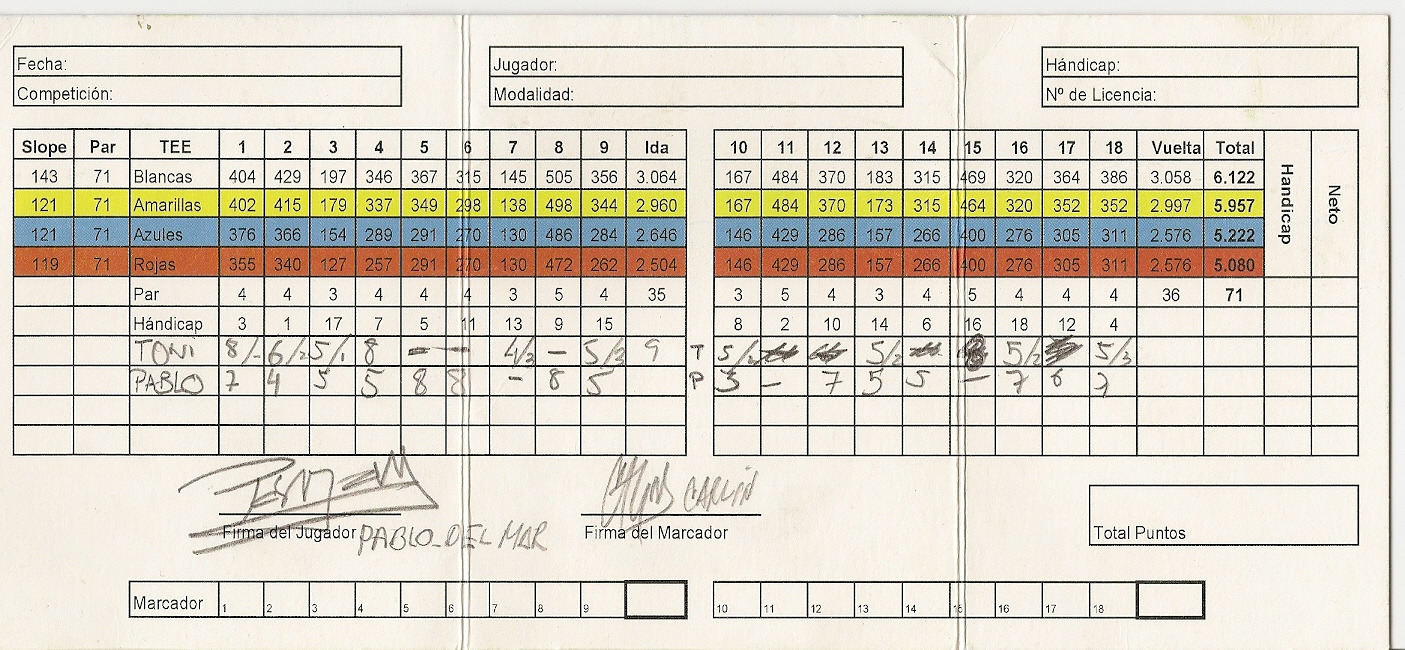 Fecha: Jugador: Hándicap:
Competición: Modalidad: Nº de Licencia:
Slope Par TEE 1 2 3 4 5 6 7 8 9 Ida 10 11 12 13 14 15 16 17 18 Vuelta Total Handicap Neto
143 71 Blancas 404 429 197 346 367 315 145 505 356 3.064 167 484 370 183 315 469 320 364 386 3.058 6.122
121 71 Amarillas 402 415 179 337 349 298 138 498 344 2.960 167 484 370 173 315 464 320 352 352 2.997 5.957
121 71 Azules 376 366 154 289 291 270 130 486 284 2.646 146 429 286 157 266 400 276 305 311 2.576 5.222
119 71 Rojas 355 340 127 257 291 270 130 472 262 2.504 146 429 286 157 266 400 276 305 311 2.576 5.080
Par 4 4 3 4 4 4 3 5 4 35 3 5 4 3 4 5 4 4 4 36 71
Hándicap 3 1 17 7 5 11 13 9 15 8 2 10 14 6 16 18 12 4
TONI 8/- 6/2 5/1 8 - - 4/2 - 5/3 9 T 5/2 5/2 5/2 5/3
PABLO 7 4 5 5 8 8 - 8 5 P 3 - 7 5 5 - 7 6 7
CARLIN
Firma del Jugador PABLO DEL MAR Firma del Marcador
Total Puntos
Marcador 1 2 3 4 5 6 7 8 9 10 11 12 13 14 15 16 17 18